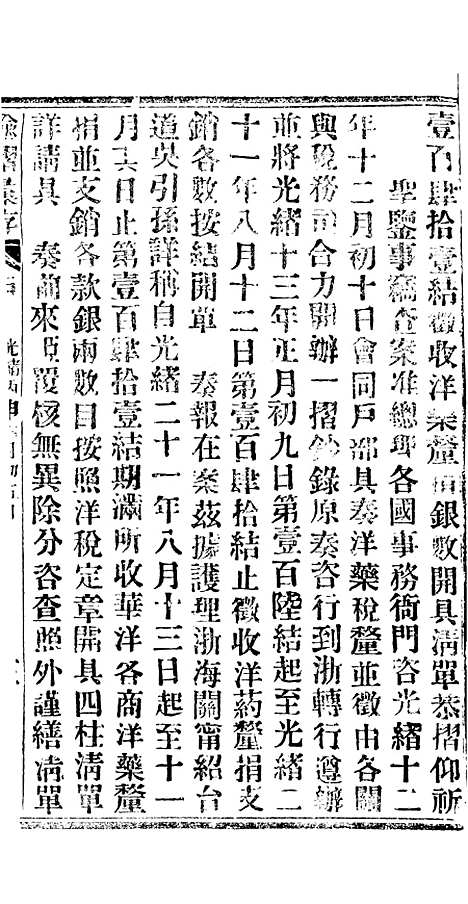 壹百肆拾壹結徵收洋藥釐捐銀數開具清單恭摺仰祈
聖鑒事竊查案准總理各國事務衙門咨光緒十二
年十二月初十日會同戶部具奏洋藥稅釐並徵由各關
與稅務司合力開辦一摺鈔錄原奏咨行到浙轉行遵辦
並將光緒十三年正月初九日第壹百陸結起至光緒二
十一年八月十二日第壹百肆拾結止徵收洋药釐捐支
銷各數按結開單 奏報在案茲據護理浙海關甯紹台
道吳引孫詳稱自光緒二十一年八月十三日起至十一
月 日止第壹百肆拾壹結期滿所收華洋各商洋藥釐
捐並支銷各款銀兩數目按照洋稅定章開具四柱清單
詳請具 奏前來臣覆核無異除分咨查照外謹繕清單
諭摺彙存